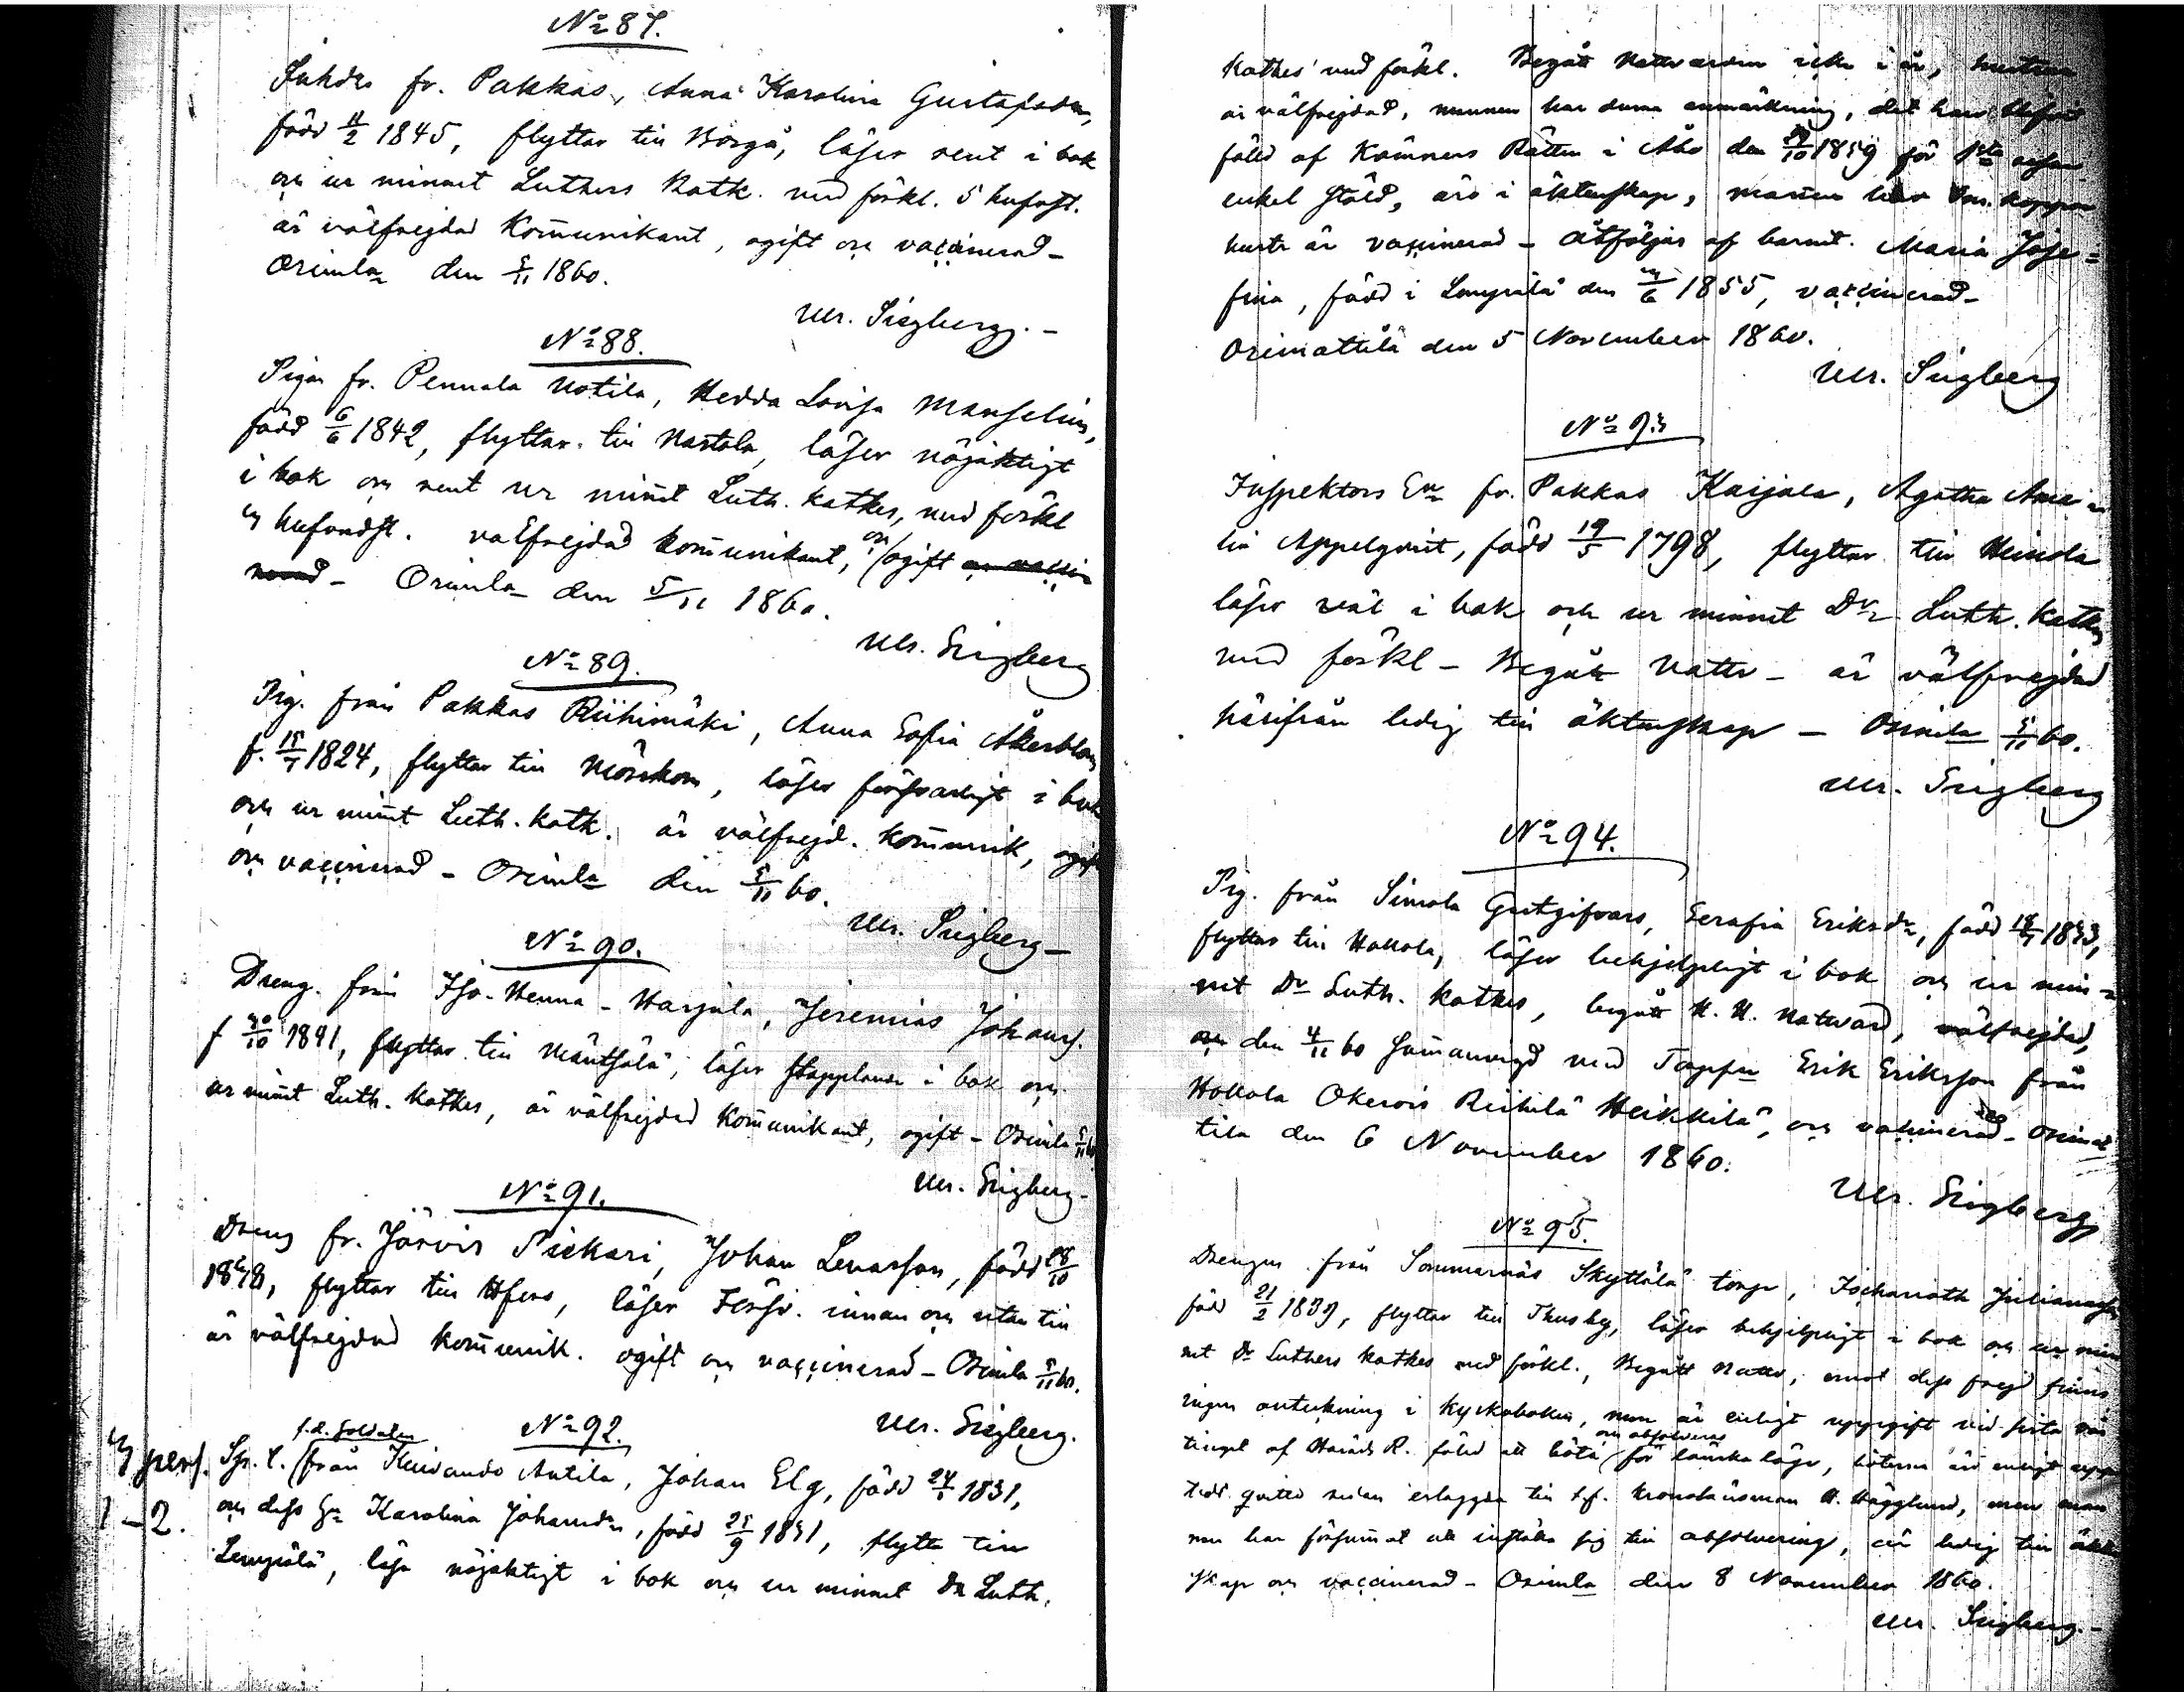 No 87.
Inhdr fr. Pakkas, Anna Karolina Gustafsdr,
född 11/2 1845, flyttar till Borgå, läser rent i bok
och ur minnet Luthers Katk. med förkl. &
är välfrejdad Kommunikant, ogift och vaccinerad –
Orimla den 5/11 1860.
Ulr. Sigberg. –
No 88.
Pigan fr. Pennala Notila, Hedda Lovisa
född 6/6 1842, flyttar till Nastola, läser nöjaktigt
i bok och rent ur minnet Luth. katkes, med förkl
& hufvudst. välfrejdad kommunikant, och ogift
Orimla den 5/11 1860.
Ulr. Sigberg
No 89.
Pig. från Pakkas Riihimäki, Anna Sofia Åkerblom
f. 15/7 1824, flyttar till Mörskom, läser försvarligt i bok
och ur minnet Luth. katk. är välfrejd. kommunik, ogift
och vaccinerad – Orimla den 5/11 60.
Ulr. Sigberg –
No 90.
Dreng. från Iso-Henna-Harjula, Jeremias Johanss.
f 30/10 1841, flyttar till Mäntsälä, läser stapplande i bok och
ur minnet Luth. katkes, är välfrejdad kommunikant, ogift – Orimla 5/11 60
Ulr. Sigberg –
No 91.
Dreng fr. Järvis Piekari, Johan Lenasson, född 28/10
1838, flyttar till Hfors, läser Försv. innan och utan till
är välfrejdad kommunik. ogift och vaccinerad – Orimla 5/11 60.
Ulr. Sigberg.
No 92.
3 pers. f.d. Soldaten
1–2. från Keituudo Antila, Johan Elg, född 24/1 1831,
och dess Hu Karolina Johansdr, född 25/9 1831, flytta till
Lempälä, läsa nöjaktigt i bok och ur minnet Dr Luth.
Katkes med förkl. Begått Nattvarden icke i år, hustrun
är välfrejdad, mannen har denna anmärkning, det han blifvit
fälld af Kämners Rätten i Åbo den 29/10 1859 för 1sta resan
enkel stöld, äro i äktenskap, mannen haft koppor
hustr är vaccinerad – åtföljas af barnet. Maria Jose=
fina, född i Lempälä den 24/6 1855, vaccinerad –
Orimattila den 5 November 1860.
Ulr. Sigberg
No 93
Inspektors En fr. Pakkas Karjala, Agatha Ama=
lia Appelqvist, född 19/5 1798, flyttar till Heinola
läser väl i bok och ur minnet Dr Luth. Katkes
med förkl – Begått Nattv – är välfrejdad
härifrån ledig till äktenskap – Orimla 5/11 60.
Ulr. Sigberg
No 94.
Pig. från Simola Gästgifvars, Serafia Eriksdr, född 18/7 1833,
flyttar till Hollola, läser behjelpligt i bok och ur min=
net Dr Luth. katkes, begått H. H. Natvard, välfrejdad,
och den 4/11 60 sammanvigd med Torppn Erik Eriksson från
Hollola Okerois Reikilä Heikkilä, och vaccinerad – Orimat
tila den 6 November 1860.
Ulr. Sigberg
No 95.
Drengen från Sommarnäs Skyttälä torp, Ischarioth Juliansson
född 21/2 1839, flyttar till Thusby, läser behjelpligt i bok och ur min
net Dr Luthers katkes med förkl., Begått Nattv, emot dess frejd finns
ingen anteckning i kyrkoboken, men är enligt uppgift vid sista
tinget af Härads R. fälld att böta och absolveras för lönska läge, böterna äro enligt upp
tedt qvitto redan erlagda till t.f. Kronolänsman H. Hägglund, men man
nen har försummat att inställa sig till absolvering, är ledig till äkten
skap och vaccinerad – Orimla den 8 November 1860.
Ulr. Sigberg. –